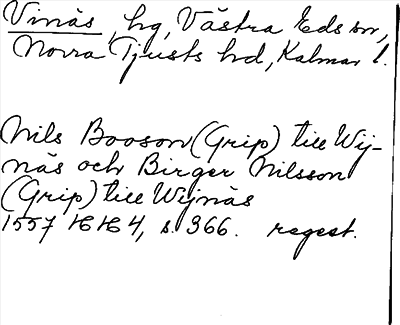 Vinäs, hg, Västra Eds sn,
Norra Tjusts hd, Kalmar l.
Nils Booson (Grip) till Wij-
näs och Birger Nilsson
(Grip) till Wijnäs
1557 HH 4, s. 366. regest.